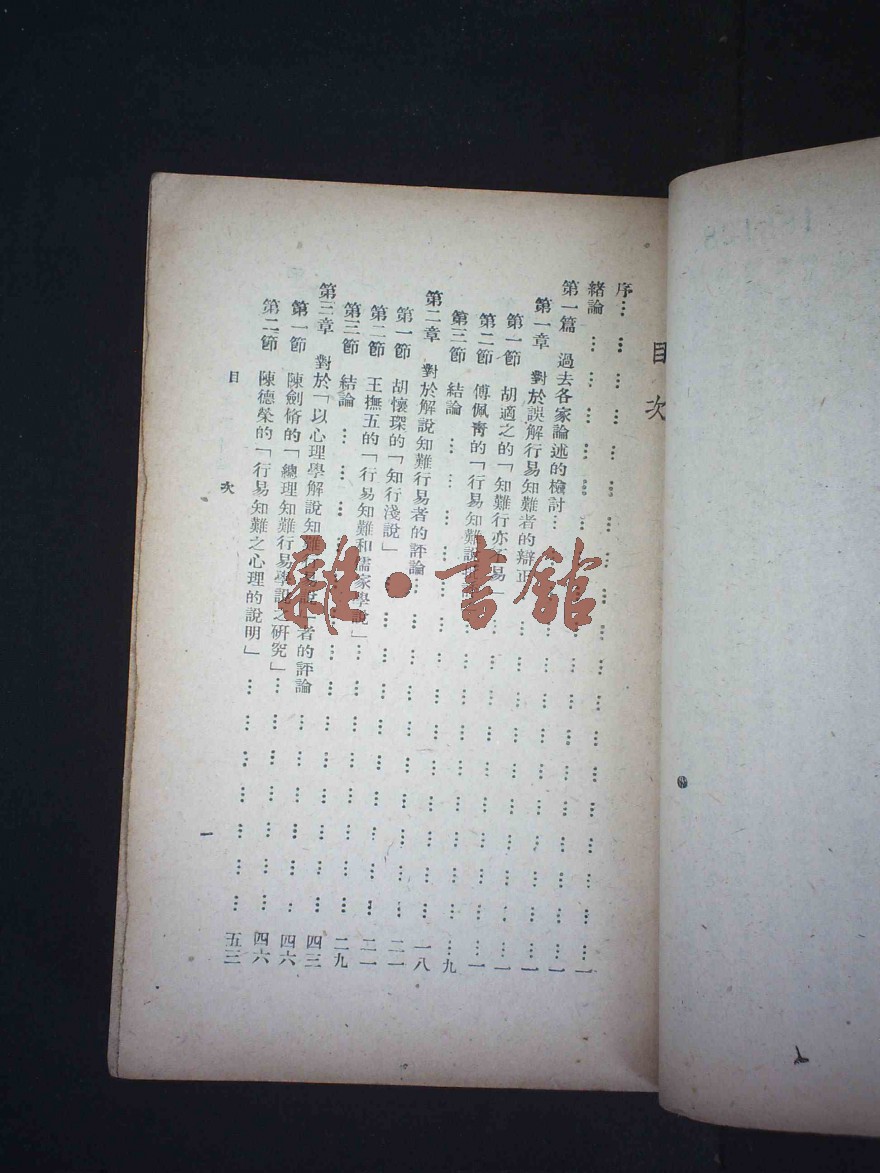 目次
序
緒論……一
第一篇 過去各家論述的檢討……一
第一章 對於誤解行易知難者的辯正……一
第一節 胡適之的「知難行亦不易」……一
第二節 傅佩青的「行易知難說……一
第三節 結論……九
第二章 對於解說知難行易者的評論……一八
第一節 胡懷琛的「知行淺說」……二一
第二節 王撫五的「行易知難和儒家學說」……二一
第三節 結論……二九
第三章 對於「以心理學解說知難行易說」者的評論……四三
第一節 陳劍脩的「總理知難行易學說之研究」……四六
第二節 陳德榮的「行易知難之心理的說明」……四六
五三
目次
一
雜·書館